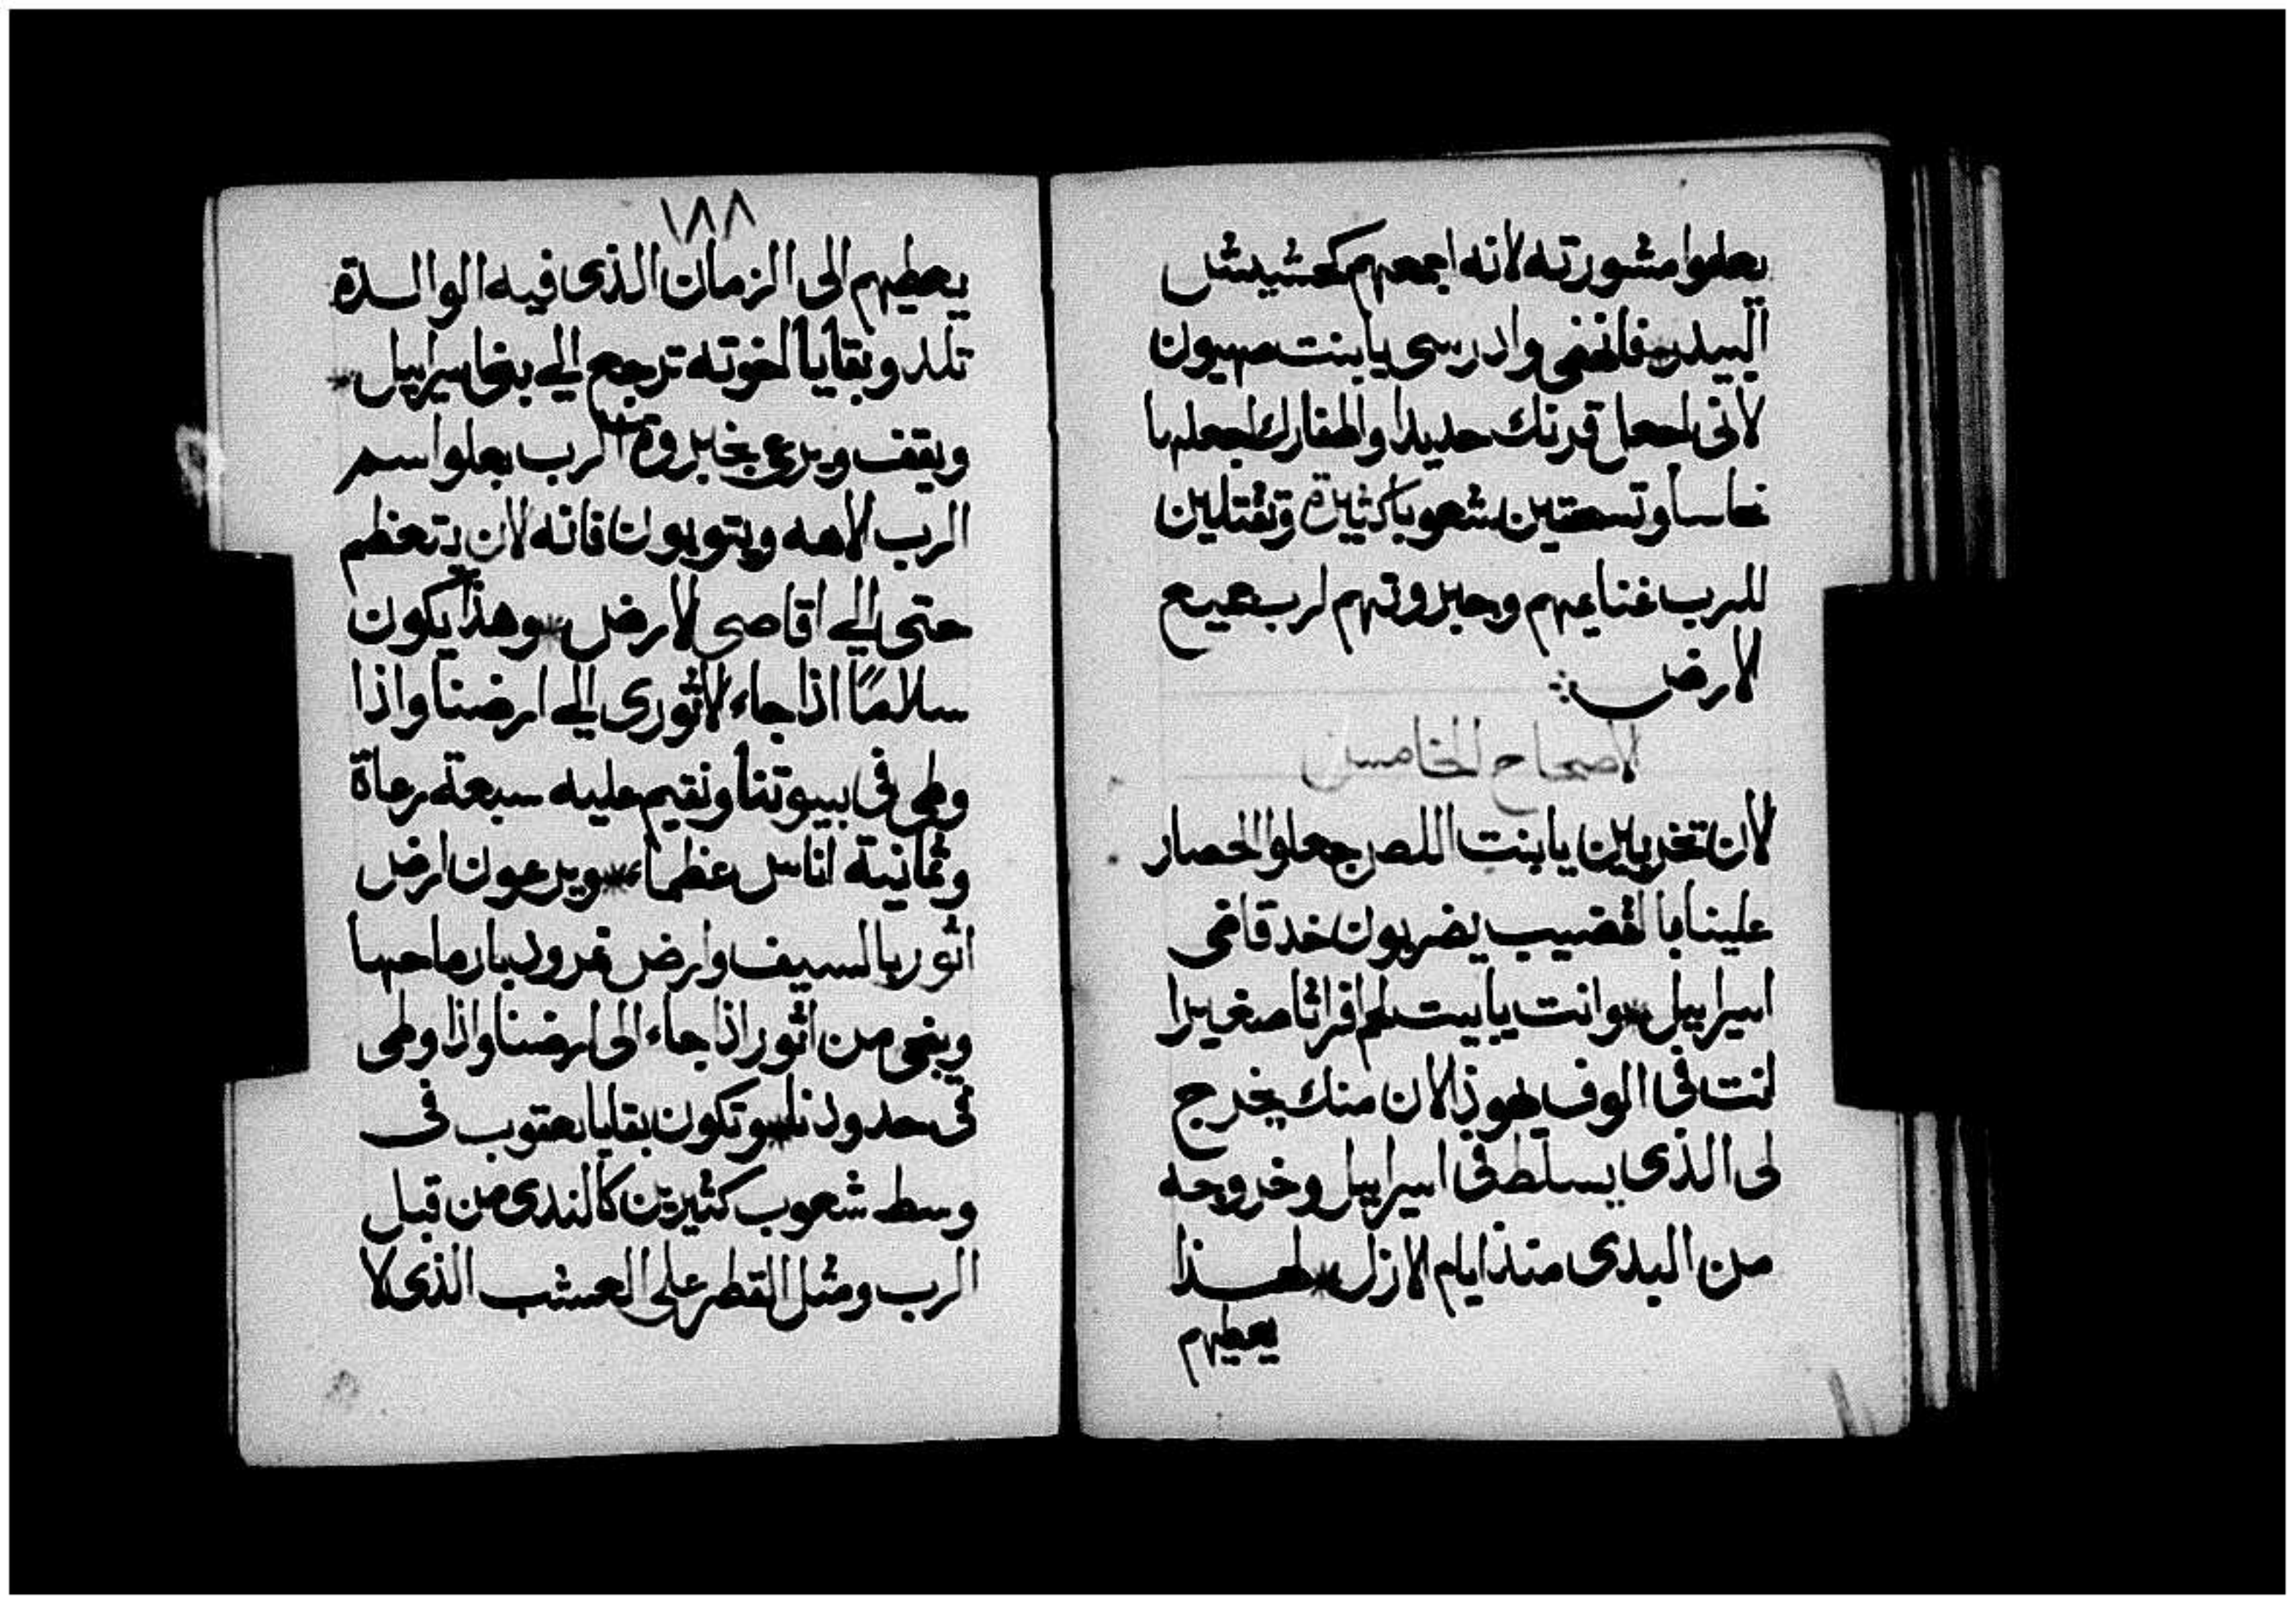 يعلموا مشورته لانه اجمعهم كحشيش
البيدر * فانهضى وادرسى يا بنت صهيون
لانى اجعل قرنك حديدا واظفارك اجعلها
نحاسا وتسحقين شعوبا كثيرة وتقتلين
للرب غنايمهم وجبروتهم لرب جميع
الارض
الاصحاح الخامس
الان تخربين يا بنت اللص جعلوا الحصار
علينا بالقضيب يضربون خد قاضى
اسراييل * وانت يا بيت لحم افراثا صغيرا
انت فى الوف يهوذا لان منك يخرج
لى الذى يسلط فى اسراييل وخروجه
من البدى منذ ايام الازل * لهذا
يعطيهم
١٨٨
يعطيهم الى الزمان الذى فيه الوالدة
تلد وبقايا اخوته ترجع الى بنى اسراييل *
ويقف ويرعى بجبروة الرب بعلو اسم
الرب الاهه ويتوبون فانه لان يتعظم
حتى الى اقاصى الارض * وهذا يكون
سلامًا اذا جاء الاثورى الى ارضنا واذا
وطى فى بيوتنا ونقيم عليه سبعة رعاة
وثمانية اناس عظماء * ويرعون ارض
اثور بالسيف وارض نمرود بارماحها
وينجى من اثور اذا جاء الى ارضنا واذا وطى
فى حدودنا * وتكون بقايا يعقوب فى
وسط شعوب كثيرين كالندى من قبل
الرب ومثل القطر على العشب الذى لا